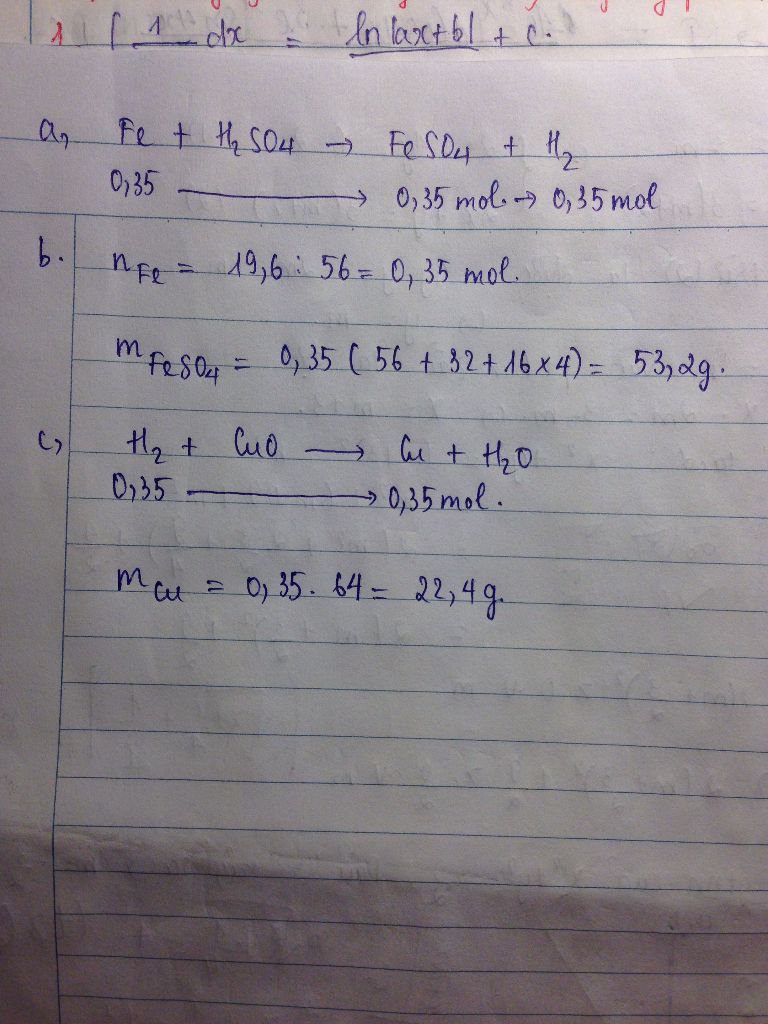 1 ∫ 1 dx = ln|ax+b| + C.
a, Fe + H₂SO₄ → FeSO₄ + H₂
0,35 → 0,35 mol. → 0,35 mol
b. nFe = 19,6 : 56 = 0,35 mol.
mFeSO₄ = 0,35 ( 56 + 32 + 16 x 4) = 53,2g.
c, H₂ + CuO → Cu + H₂O
0,35 → 0,35 mol.
mCu = 0,35 . 64 = 22,4g.